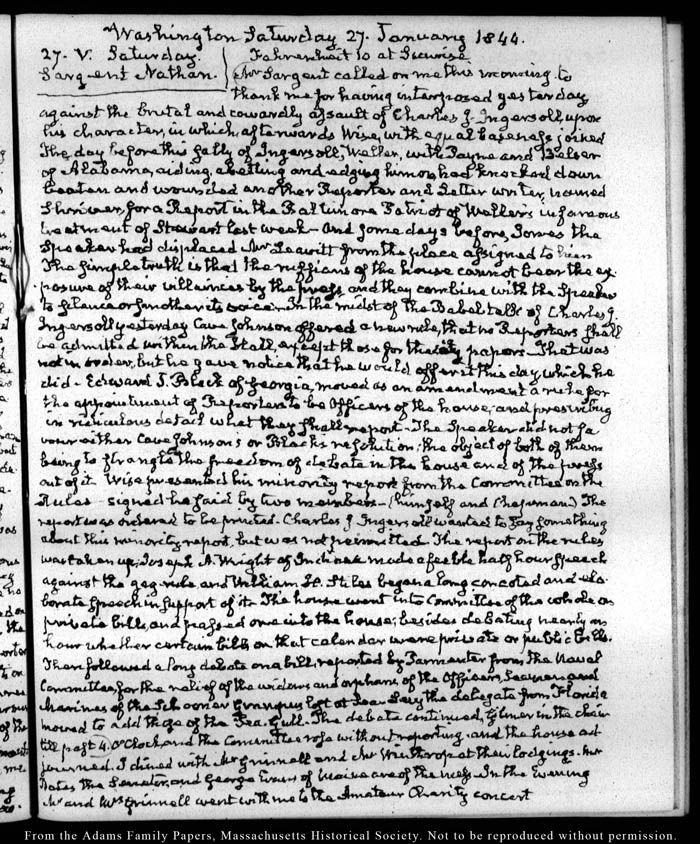 Washington Saturday 27. January 1844.
27. V. Saturday. Fahrenheit 10 at Sunrise
Sargent Nathan. Mr Sargent called on me this morning to
thank me for having interposed yesterday
against the brutal and cowardly assault of Charles J. Ingersoll, upon
his character, in which, afterwards Wise, with equal baseness joined
The day before this sally of Ingersoll, Weller, with Payne and Belser
of Alabama, aiding, abetting and edging him on, had knocked down
beaten and wounded another Reporter and Letter writer, named
Shriver, for a Report in the Baltimore Patriot of Weller's infamous
treatment of Stewart last week— And some days before, Jones the
Speaker had displaced Mr Leavitt from the place assigned to him
The simple truth is that the ruffians of the house cannot bear the ex-
posure of their villainies by the press and they combine with the Speaker
to silence or smother its voice. In the midst of the Babel talk of Charles J.
Ingersoll yesterday Cave Johnson offered a new rule, that no Reporters shall
be admitted within the Hall, except those for the city papers— That was
not in order, but he gave notice that he would offer it this day, which he
did— Edward J. Black of Georgia, moved as an amendment a rule for
the appointment of Reporters to be Officers of the house, and prescribing
in ridiculous detail what they shall report— The Speaker did not fa-
vour either Cave Johnson's or Black's resolution; the object of both of them
being to strangle the freedom of debate in the house and of the press
out of it. Wise presented his minority report from the Committee on the
Rules— signed he said by two members— (himself and Chapman) The
report was ordered to be printed. Charles J. Ingersoll wanted to say something
about this minority report, but was not permitted. The report on the rules
was taken up; Joseph A. Wright of Indiana made a feeble half hour speech
against the gag-rule and William H. Stiles began a long concocted and ela-
borate speech in support of it— The house went into Committee of the whole on
private bills, and passed one into the house; besides debating nearly an
hour whether certain bills on that calendar were private or public bills.
Then followed a long debate on a bill, reported by Parmenter from the Naval
Committee, for the relief of the widows and orphans of the Officers, Seamen and
Marines of the Schooner Grampus lost at Sea— Levy the delegate from Florida
moved to add those of the Sea-Gull. The debate continued, Gilmer in the chair
till past 4. O'Clock, and the Committee rose without reporting and the house ad-
journed. I dined with Mr Grinnell and Mr Winthrop at their lodgings. Mr
Bates the Senator, and George Evans of Maine are of the mess— In the Evening
Mr and Mrs Grinnell went with me to the Amateur Charity concert
From the Adams Family Papers, Massachusetts Historical Society. Not to be reproduced without permission.